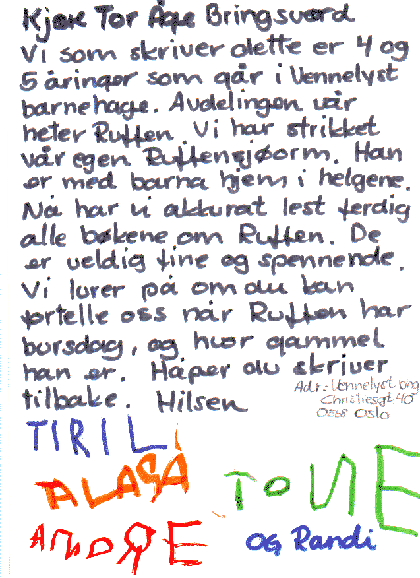 Kjære Tor Åge Bringsværd
Vi som skriver dette er 4 og
5 åringer som går i Vennelyst
barnehage. Avdelingen vår
heter Ruffen. Vi har strikket
vår egen Ruffensjøorm. Han
er med barna hjem i helgene.
Nå har vi akkurat lest ferdig
alle bøkene om Ruffen. De
er veldig fine og spennende.
Vi lurer på om du kan
fortelle oss når Ruffen har
bursdag, og hvor gammel
han er. Håper du skriver
tilbake. Hilsen
Adr: Vennelyst brg
Christiesgt 40
Oslo
TIRIL
TONE
ANDRE
og Randi